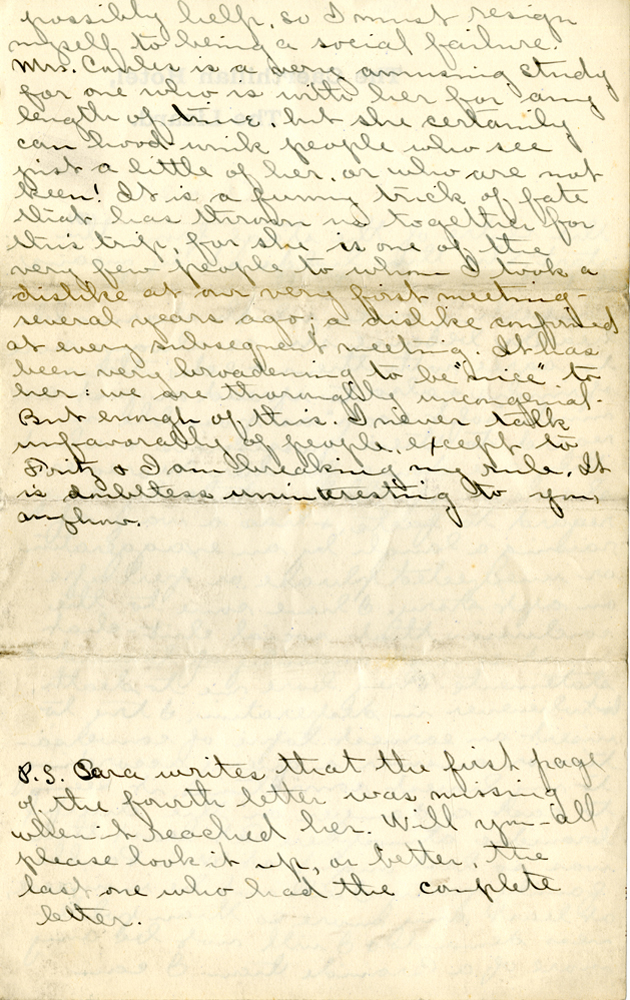 possibly help, so I must resign
myself to being a social failure.
Mrs. is a very amusing study
for one who is with her for any
length of time, but she certainly
can hood-wink people who see
just a little of her, or who are not
keen! It is a funny trick of fate
that has thrown us together for
this trip, for she is one of the
very few people to whom I took a
dislike at our very first meeting-
several years ago; a dislike confirmed
at every subsequent meeting. It has
been very broadening to be "nice" to
her: we are thoroughly uncongenial.
But enough of this. I never talk
unfavorably of people, except to
Fritz & I am breaking my rule. It
is doubtless uninteresting to you,
anyhow.
P.S. Cara writes that the first page
of the fourth letter was missing
when it reached her. Will you-all
please look it up, or better, the
last one who had the complete
letter.